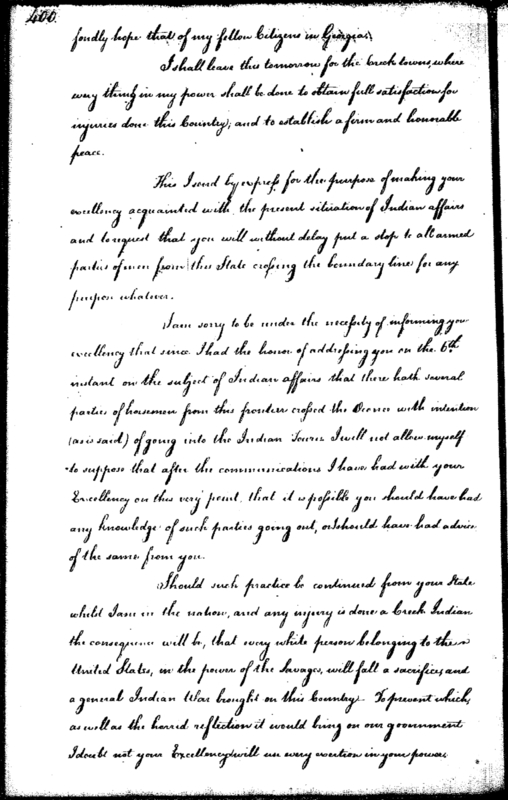 400
fondly hope that of my fellow Citizens in Georgia.
I shall leave this tomorrow for the Creek towns, where
every thing in my power shall be done to obtain full satisfaction for
injuries done this Country; and to establish a firm and honorable
peace.
This I send by express for the purpose of making your
excellency acquainted with the present situation of Indian affairs
and to request that you will without delay put a stop to all armed
parties of men from this State crossing the boundary line for any
purpose whatever.
I am sorry to be under the necessity of informing your
excellency that since I had the honor of addressing you on the 6th
instant on the subject of Indian affairs that there hath several
parties of horsemen from this frontier crossed the Oconee with intention
(as is said) of going into the Indian Towns I will not allow myself
to suppose that after the communications I have had with your
Excellency on this very point, that it is possible you should have had
any knowledge of such parties going out, or I should have had advice
of the same from you.
Should such practice be continued from your State
whilst I am in the nation, and any injury is done a Creek Indian
the consequence will be, that every white person belonging to the
United States, in the power of the Savages, will fall a sacrifice, and
a general Indian War brought on this Country. To prevent which,
as well as the horred reflection it would bring on our government
I doubt not your Excellency will use every exertion in your power